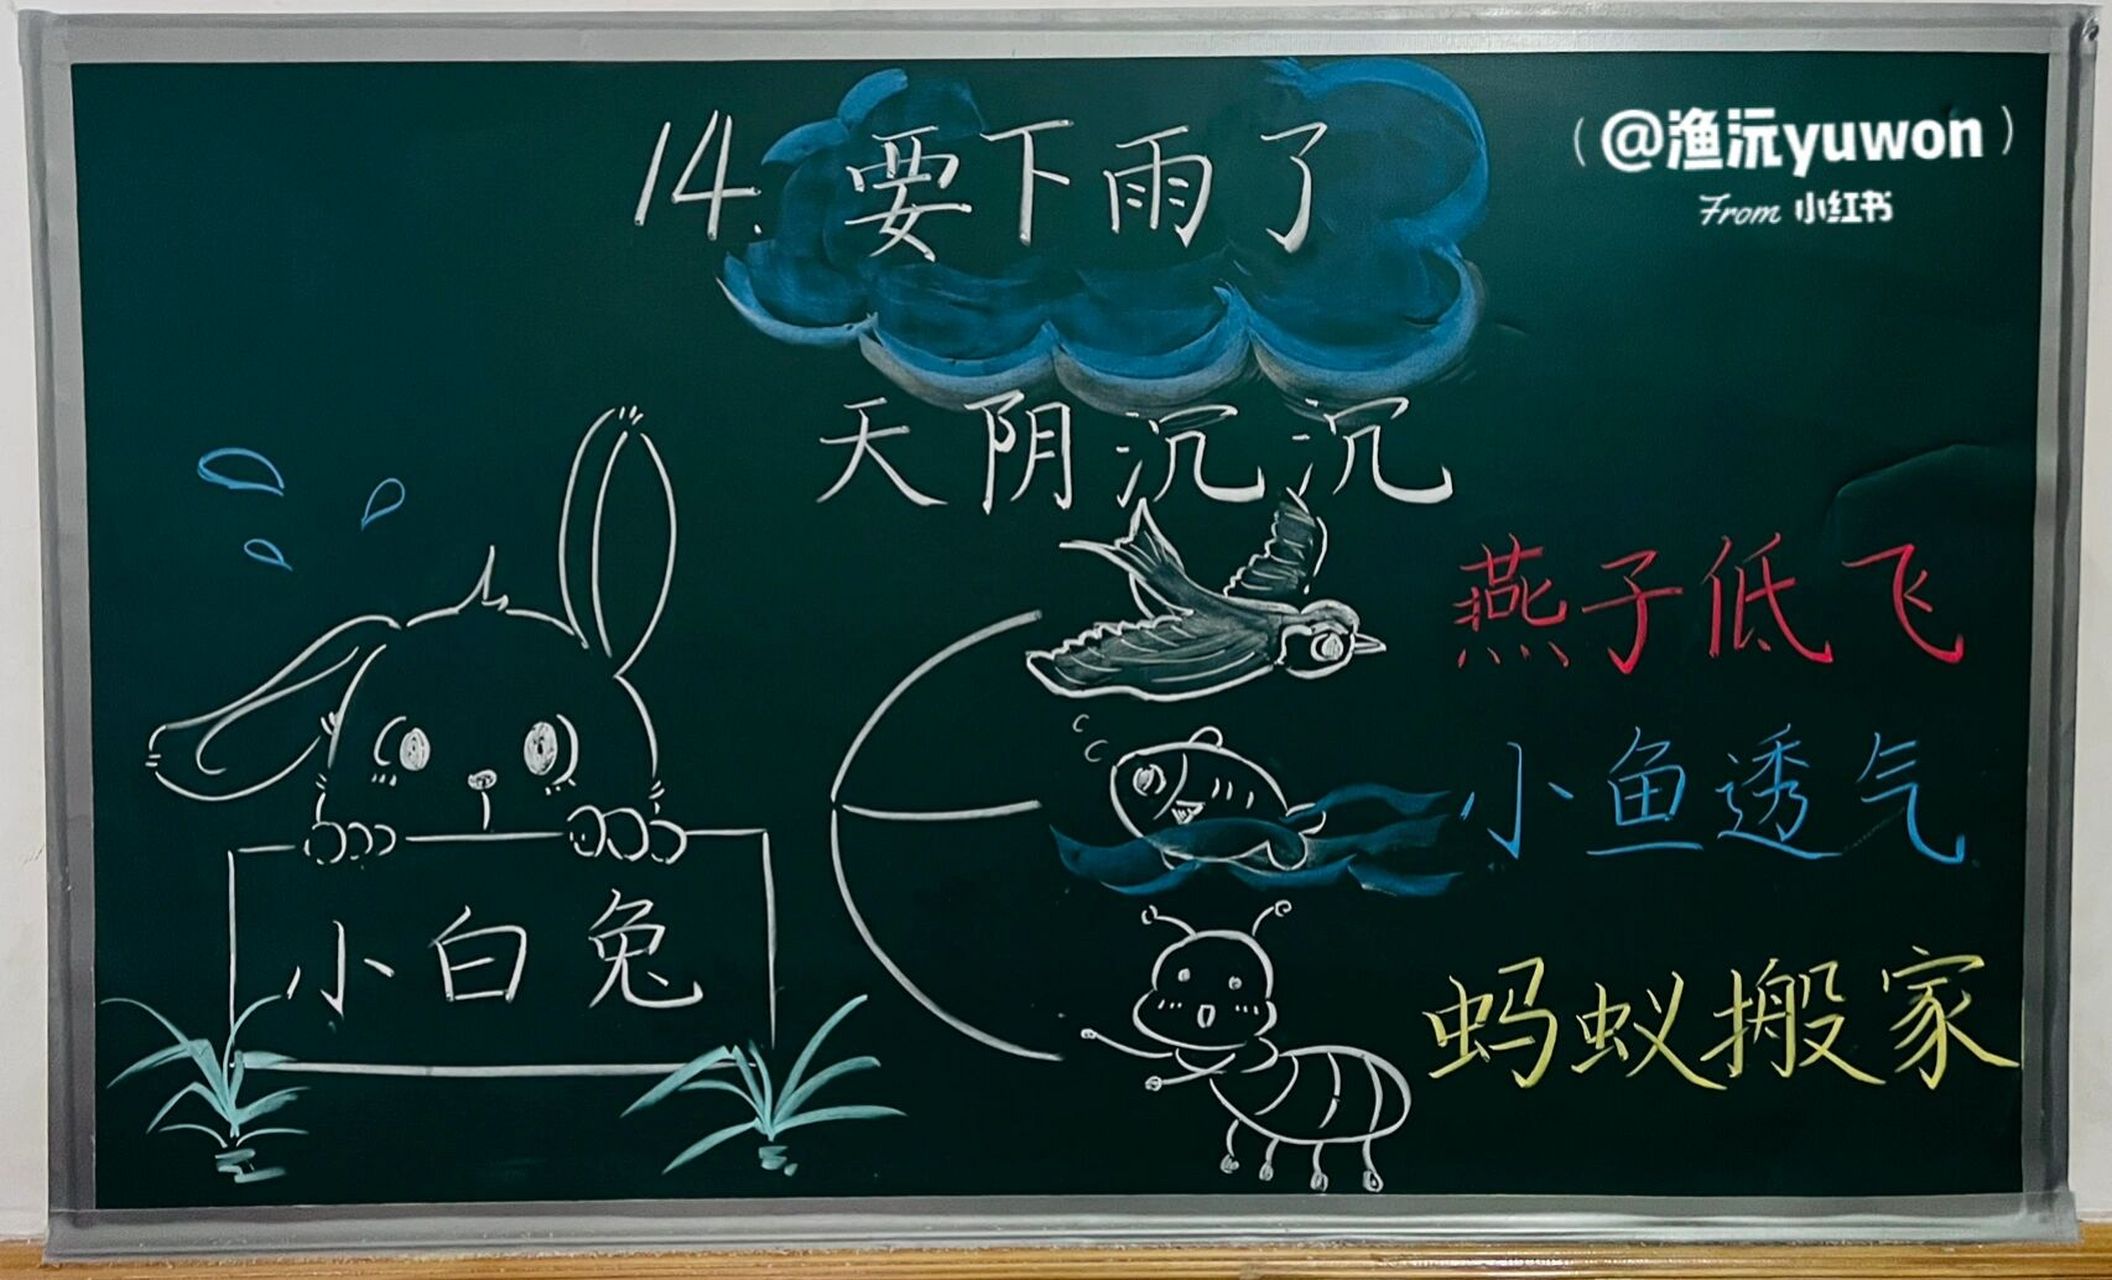 14. 要下雨了
(@渔沅yuwon)
From 小红书
天阴沉沉
燕子低飞
小鱼透气
小白兔
蚂蚁搬家